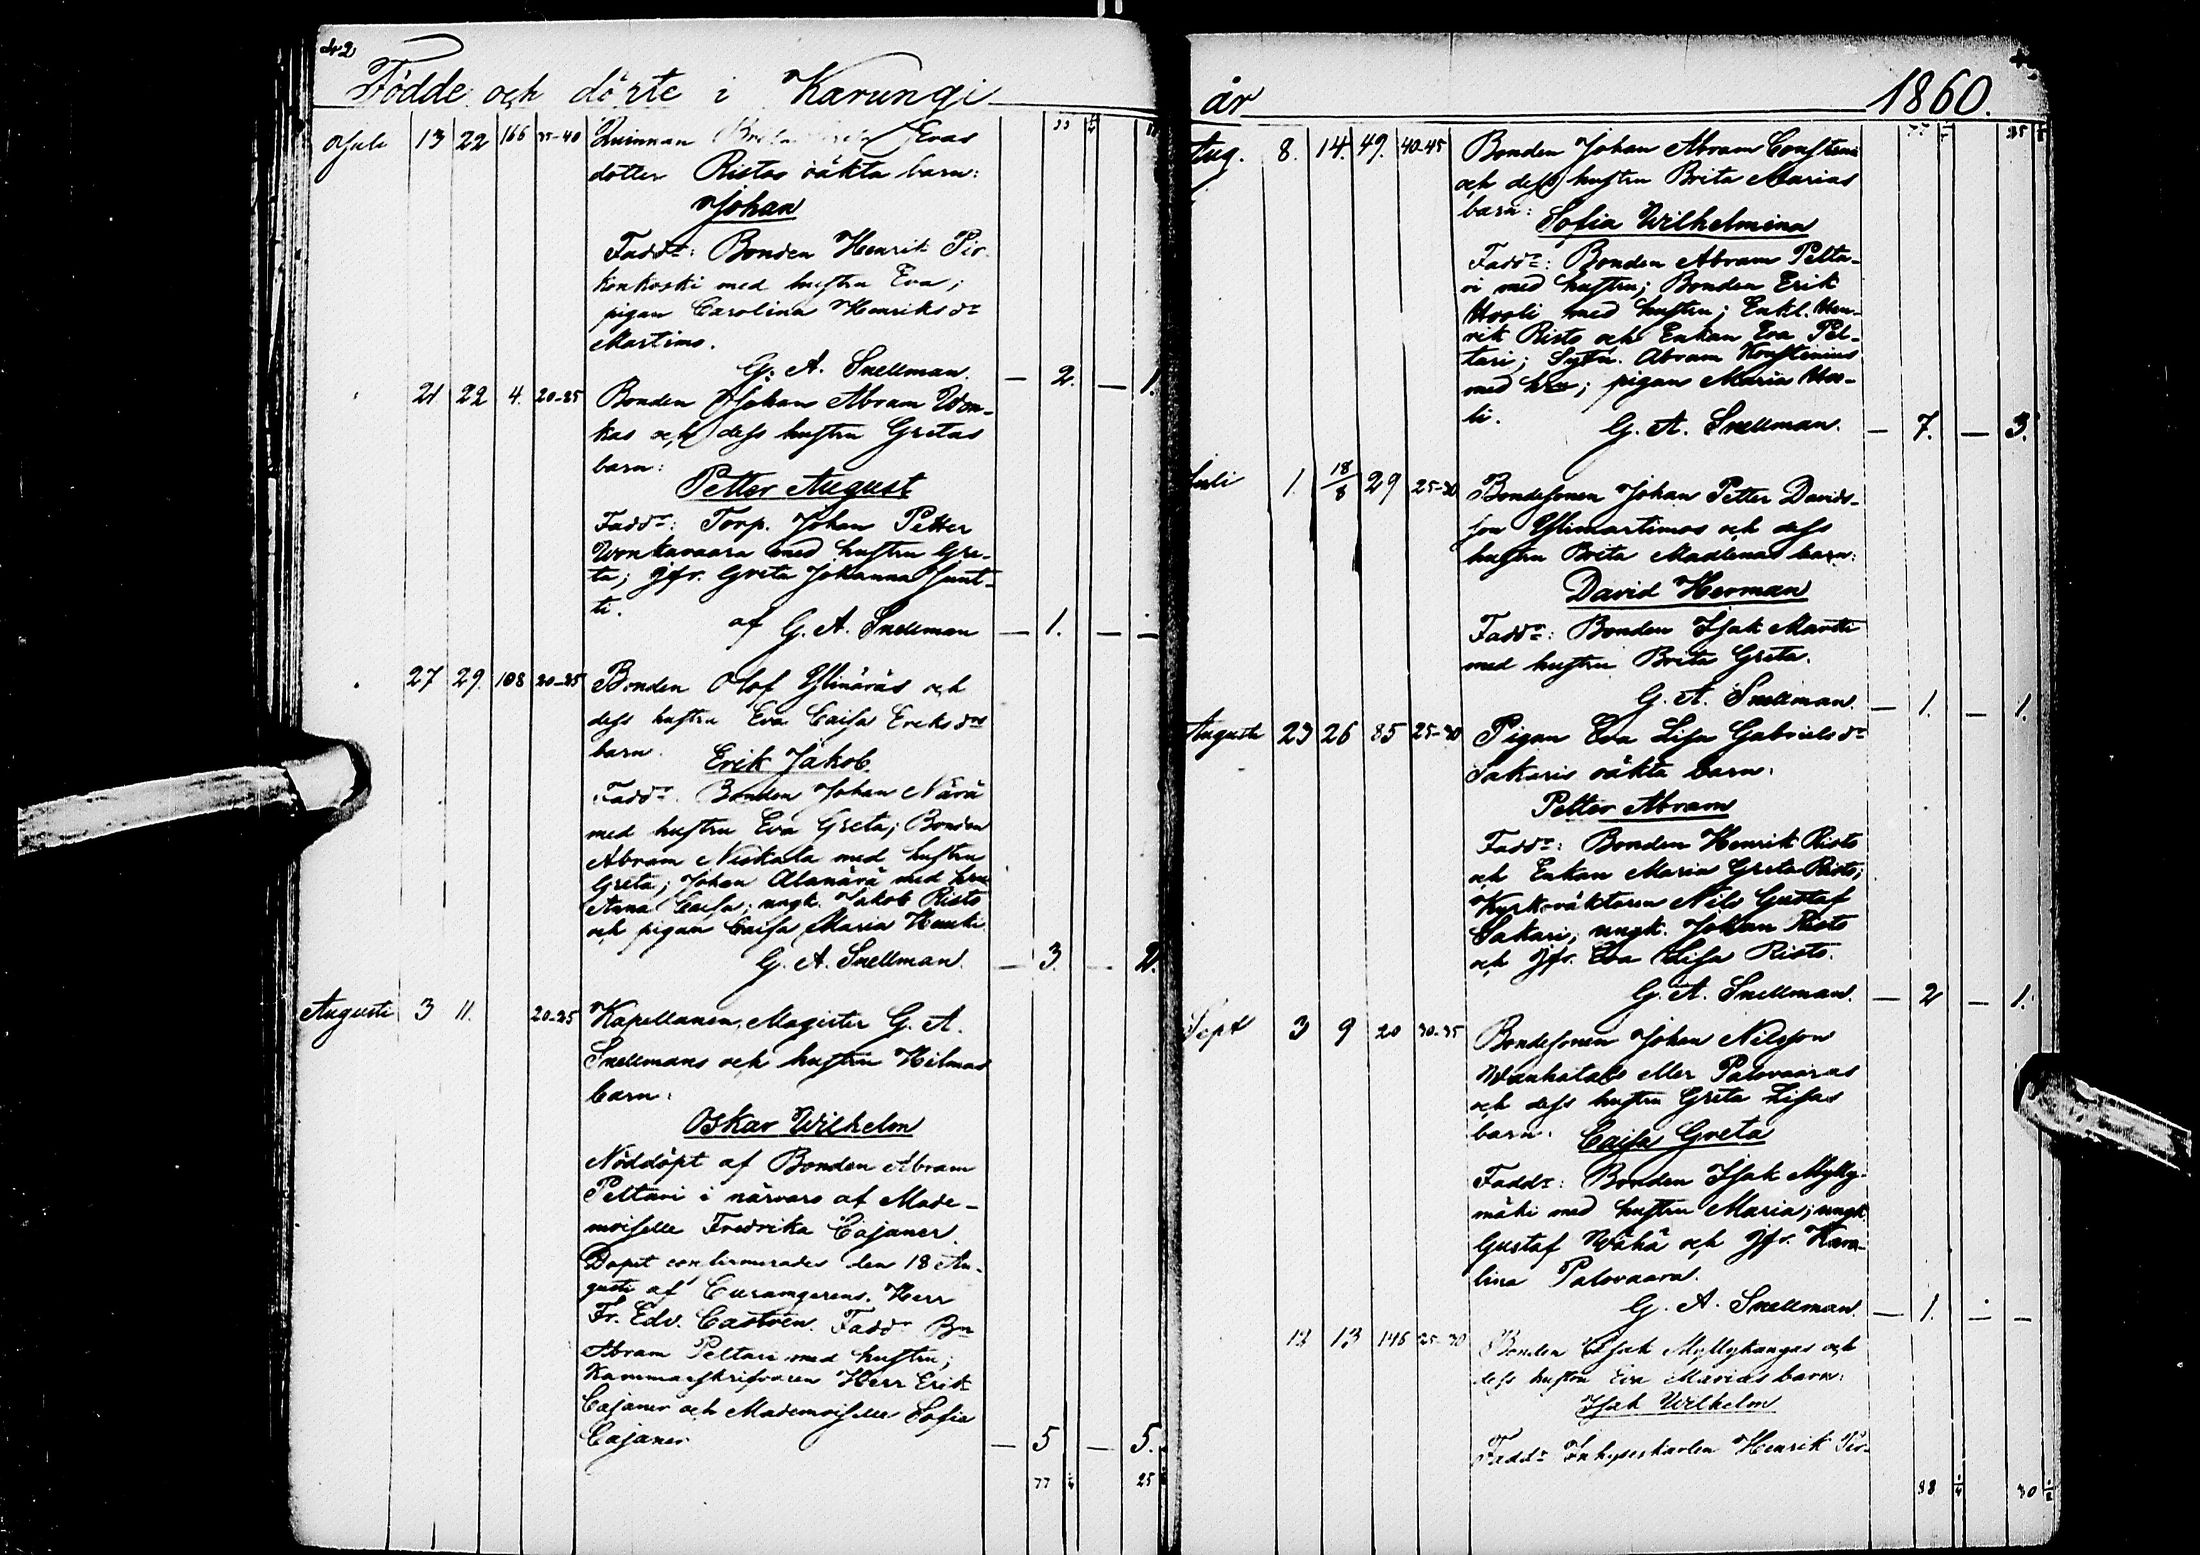 42
Födde och döpte i Karungi
Juli 13 22 166 35-40 Quinnan Evas
dotter Ristos oäkta barn:
Johan
Faddr: Bonden Henrik Pir-
konkoski med hustru Eva;
pigan Carolina Henriksdr
Martimo.
G. A. Snellman. — 2. — 1.
21 22 4. 20-25 Bonden Johan Abram Won-
kas och dess hustru Gretas
barn:
Petter August
Faddr: Torp. Johan Petter
Wonkavaara med hustru Gre-
ta; Jfr. Greta Johanna Junt-
ti.
af G. A. Snellman — 1. — —
27 29. 108 20-25 Bonden Olof Ylinäräs och
dess hustru Eva Caisa Eriksdrs
barn.
Erik Jakob.
Faddr. Bonden Johan Närä
med hustru Eva Greta; Bonden
Abram Niskala med hustru
Greta; Johan Alanärä med hru
Anna Caisa; ungk. Jakob Risto
och pigan Caisa Maria
G. A. Snellman. — 3. — 2.
Augusti 3 11. 20-25 Kapellanen, Magister G. A.
Snellmans och hustru Hilmas
barn:
Oskar Wilhelm
Nöddöpt af Bonden Abram
Peltari i närvaro af Made-
moiselle Fredrika Cajaner.
Dopet confirmerades den 18 Au-
gusti af Herr
Fr. Edv. Castrén. Faddr Bn
Abram Peltari med hustru;
Kammarskrifvaren Herr Erik
Cajaner och Mademoiselle Sofia
Cajaner — 5 — 5.
77 25
år 1860.
Aug. 8. 14. 49. 40-45 Bonden Johan Abram
och dess hustru Brita Marias
barn:
Sofia Wilhelmina
Faddr: Bonden Abram Pelta-
ri med hustru; Bonden Erik
Hooli med hustru; Enkl. Hen-
rik Risto och Enkan Eva Pel-
tari; Sytn. Abram Konstenius
med hru; pigan Maria Hoo-
li.
G. A. Snellman. — 7. — 3.
Juli 1. 18/8 29 25-30 Bondesonen Johan Petter Davids-
son Ylimartimos och dess
hustru Brita Madlenas barn:
David Herman
Faddr: Bonden Isak Martti
med hustru Brita Greta.
G. A. Snellman. — 1. — 1.
Augusti 23 26 85 25-30 Pigan Eva Lisa Gabrielsdr
Sakaris oäkta barn:
Petter Abram
Faddr: Bonden Henrik Risto
och Enkan Maria Greta Risto;
Kyrkovaktaren Nils Gustaf
Sakari; ungk. Johan Risto
och Jfr. Eva Lisa Risto.
G. A. Snellman. — 2 — 1.
Sept 3 9 20 30-35 Bondesonen Johan Nilsson
Wanhatalo eller Palovaaras
och dess hustru Greta Lisas
barn:
Caisa Greta
Faddr: Bonden Isak Mylly-
mäki med hustru Maria; ungk.
Gustaf Wähä och Jfr. Karo-
lina Palovaara.
G. A. Snellman. — 1. — —
12 13 146 25-30 Bonden Isak Myllykangas och
dess hustru Eva Marias barn:
Isak Wilhelm
Faddr Inhyseskarlen Henrik Pir-
88 30